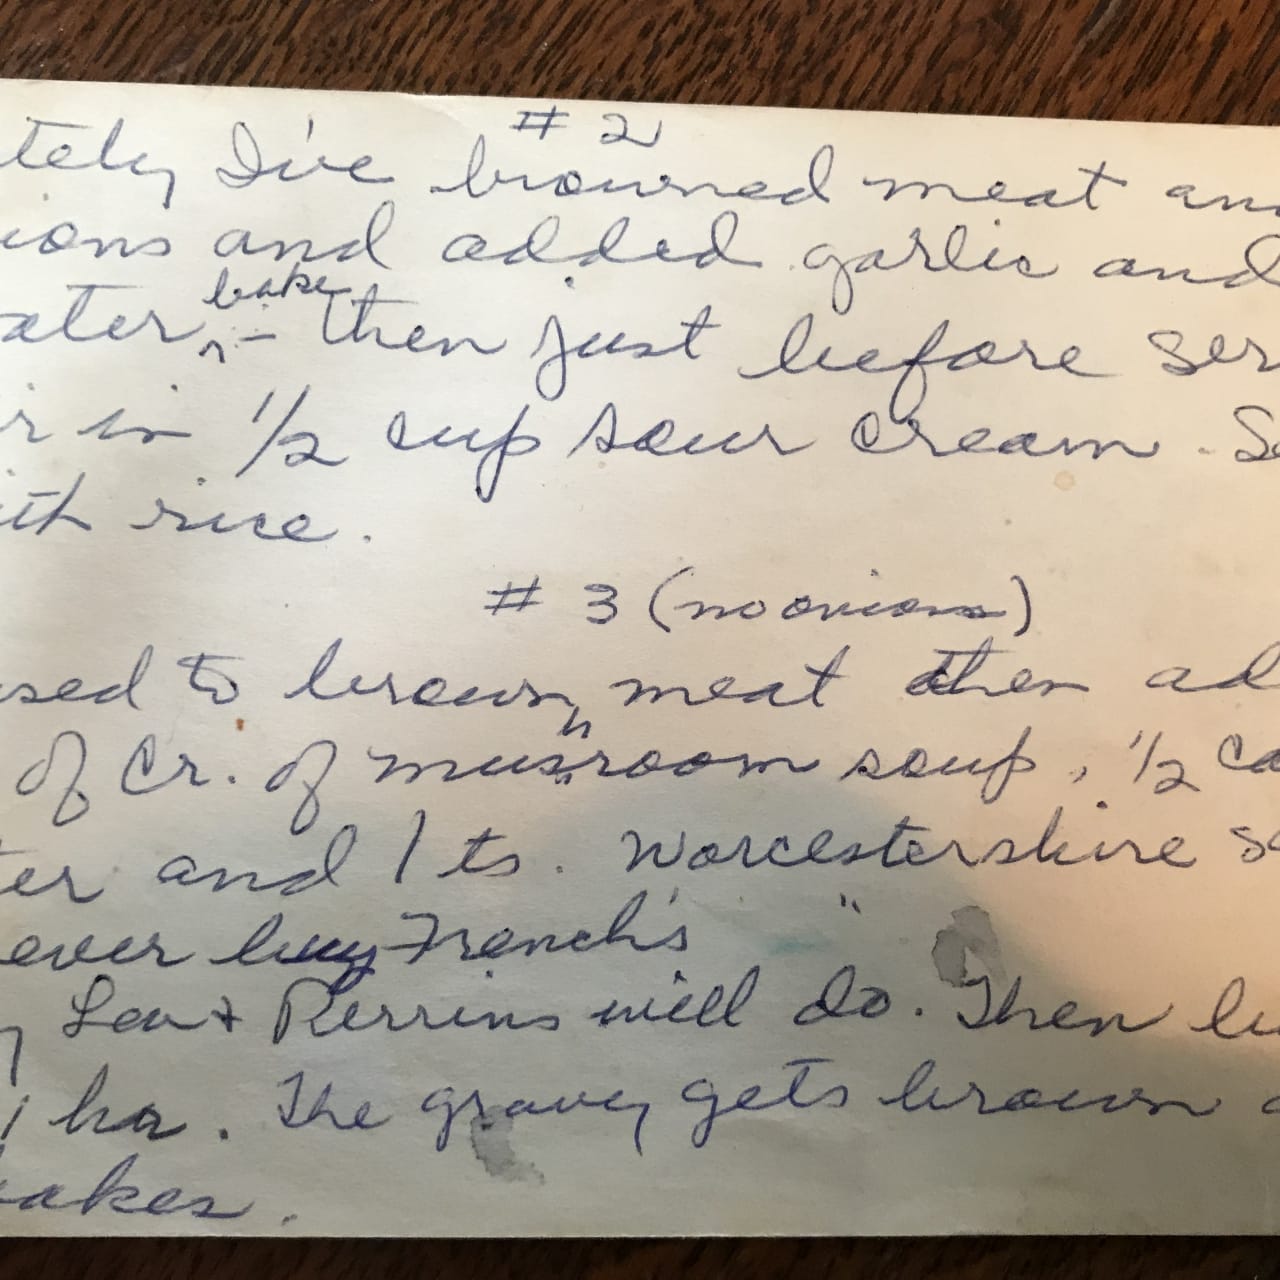 # 2
tely I've browned meat an
ions and added garlic and
ater, bake - then just before ser
ir in 1/2 cup sour cream. Se
ith rice.
# 3 (no onions)
used to brown meat then ad
of Cr. of mushroom soup, 1/2 ca
ter and 1 ts. Worcestershire sa
ever buy French's "
y Lea + Perrins will do. Then b
1 hr. The gravy gets brown a
bakes.